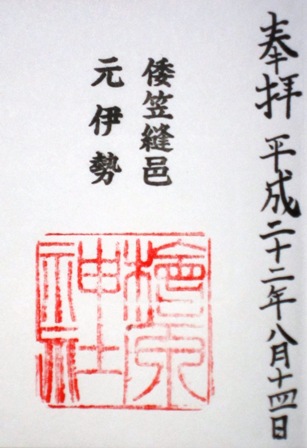 奉拝 平成二十二年八月十四日
倭笠縫邑
元伊勢
檜原神社